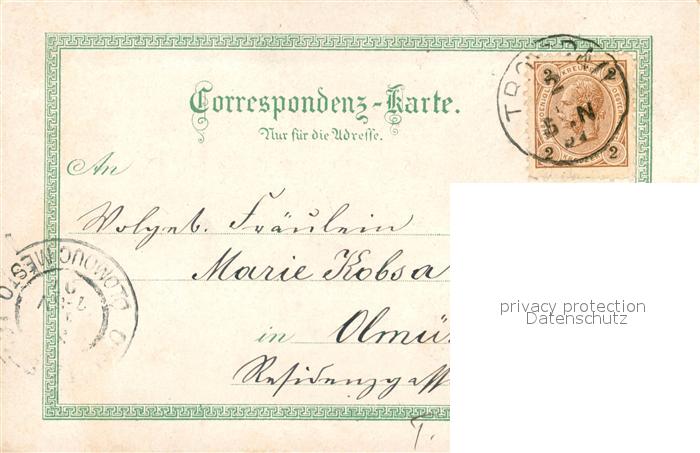 Correspondenz-Karte.
Nur für die Adresse.
An
Wolgeb. Fräulein
Marie Kobsa
in Olmü
Residenzgass
T.
2 2
KREUZER
2 2
OLOMOUC MESTO
privacy protection
Datenschutz